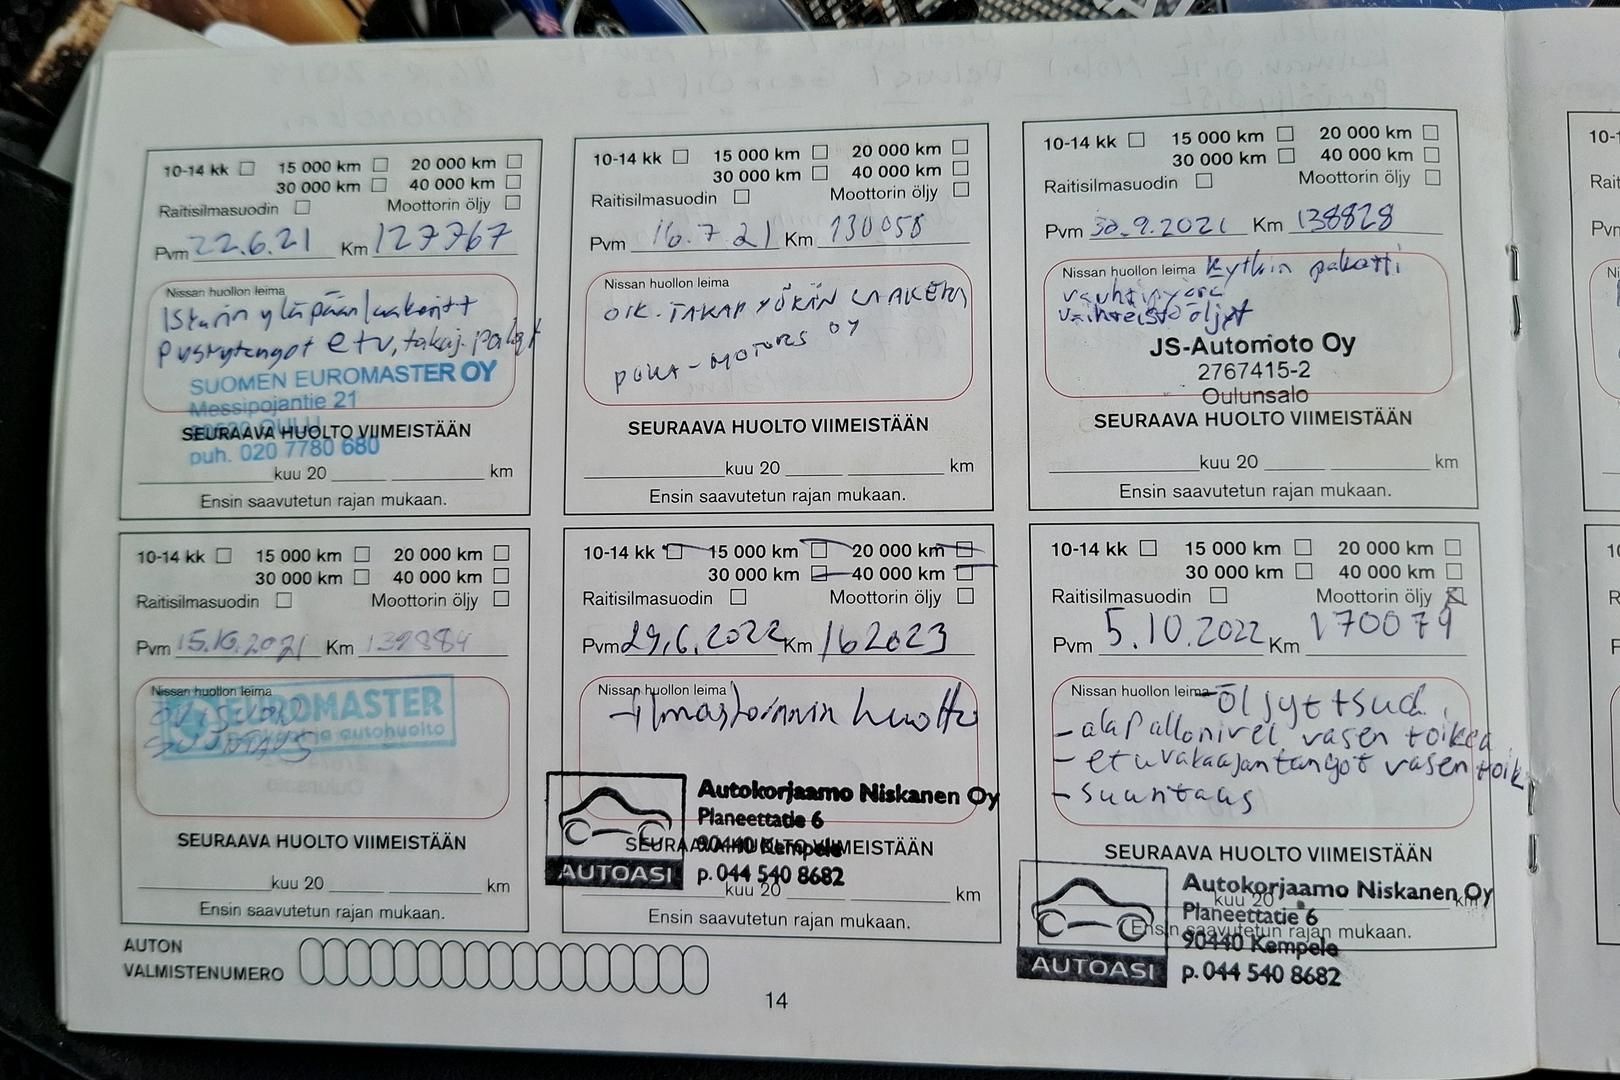 10-14 kk 15 000 km 20 000 km
30 000 km 40 000 km
Raitisilmasuodin Moottorin öljy
Pvm 22.6.21 Km 127767
Nissan huollon leima
Istarin yläpäänlaakerit
Pystytangot etu, takaj. palat
SUOMEN EUROMASTER OY
Messipojantie 21
90520 OULU
SEURAAVA HUOLTO VIIMEISTÄÄN
puh. 020 7780 680
kuu 20 km
Ensin saavutetun rajan mukaan.
10-14 kk 15 000 km 20 000 km
30 000 km 40 000 km
Raitisilmasuodin Moottorin öljy
Pvm 16.7.21 Km 130058
Nissan huollon leima
OIK. TAKAPYÖRÄN LAAKERI
MOTORS OY
SEURAAVA HUOLTO VIIMEISTÄÄN
kuu 20 km
Ensin saavutetun rajan mukaan.
10-14 kk 15 000 km 20 000 km
30 000 km 40 000 km
Raitisilmasuodin Moottorin öljy
Pvm 30.9.2021 Km 138828
Nissan huollon leima Kytkin paketti
vauhtipyörä
vaihteistoöljyt
JS-Automoto Oy
2767415-2
Oulunsalo
SEURAAVA HUOLTO VIIMEISTÄÄN
kuu 20 km
Ensin saavutetun rajan mukaan.
10-14 kk 15 000 km 20 000 km
30 000 km 40 000 km
Raitisilmasuodin Moottorin öljy
Pvm 15.10.2021 Km 139884
Nissan huollon leima
EUROMASTER
autohuolto
SUUNTAUS
SEURAAVA HUOLTO VIIMEISTÄÄN
kuu 20 km
Ensin saavutetun rajan mukaan.
10-14 kk 15 000 km 20 000 km
30 000 km 40 000 km
Raitisilmasuodin Moottorin öljy
Pvm 29.6.2022 Km 162023
Nissan huollon leima
-Ilmastoinnin huolto
Autokorjaamo Niskanen Oy
Planeettatie 6
90440 Kempele
SEURAAVA HUOLTO VIIMEISTÄÄN
AUTOASI p. 044 540 8682
kuu 20 km
Ensin saavutetun rajan mukaan.
10-14 kk 15 000 km 20 000 km
30 000 km 40 000 km
Raitisilmasuodin Moottorin öljy
Pvm 5.10.2022 Km 170079
Nissan huollon leima
-öljyt+suod.
- alapallonivel vasen+oikea
- etuvakaajantangot vasen+oik
- suuntaus
SEURAAVA HUOLTO VIIMEISTÄÄN
Autokorjaamo Niskanen Oy
kuu 20 km
Planeettatie 6
Ensin saavutetun rajan mukaan.
90440 Kempele
AUTOASI p. 044 540 8682
AUTON
VALMISTENUMERO
14